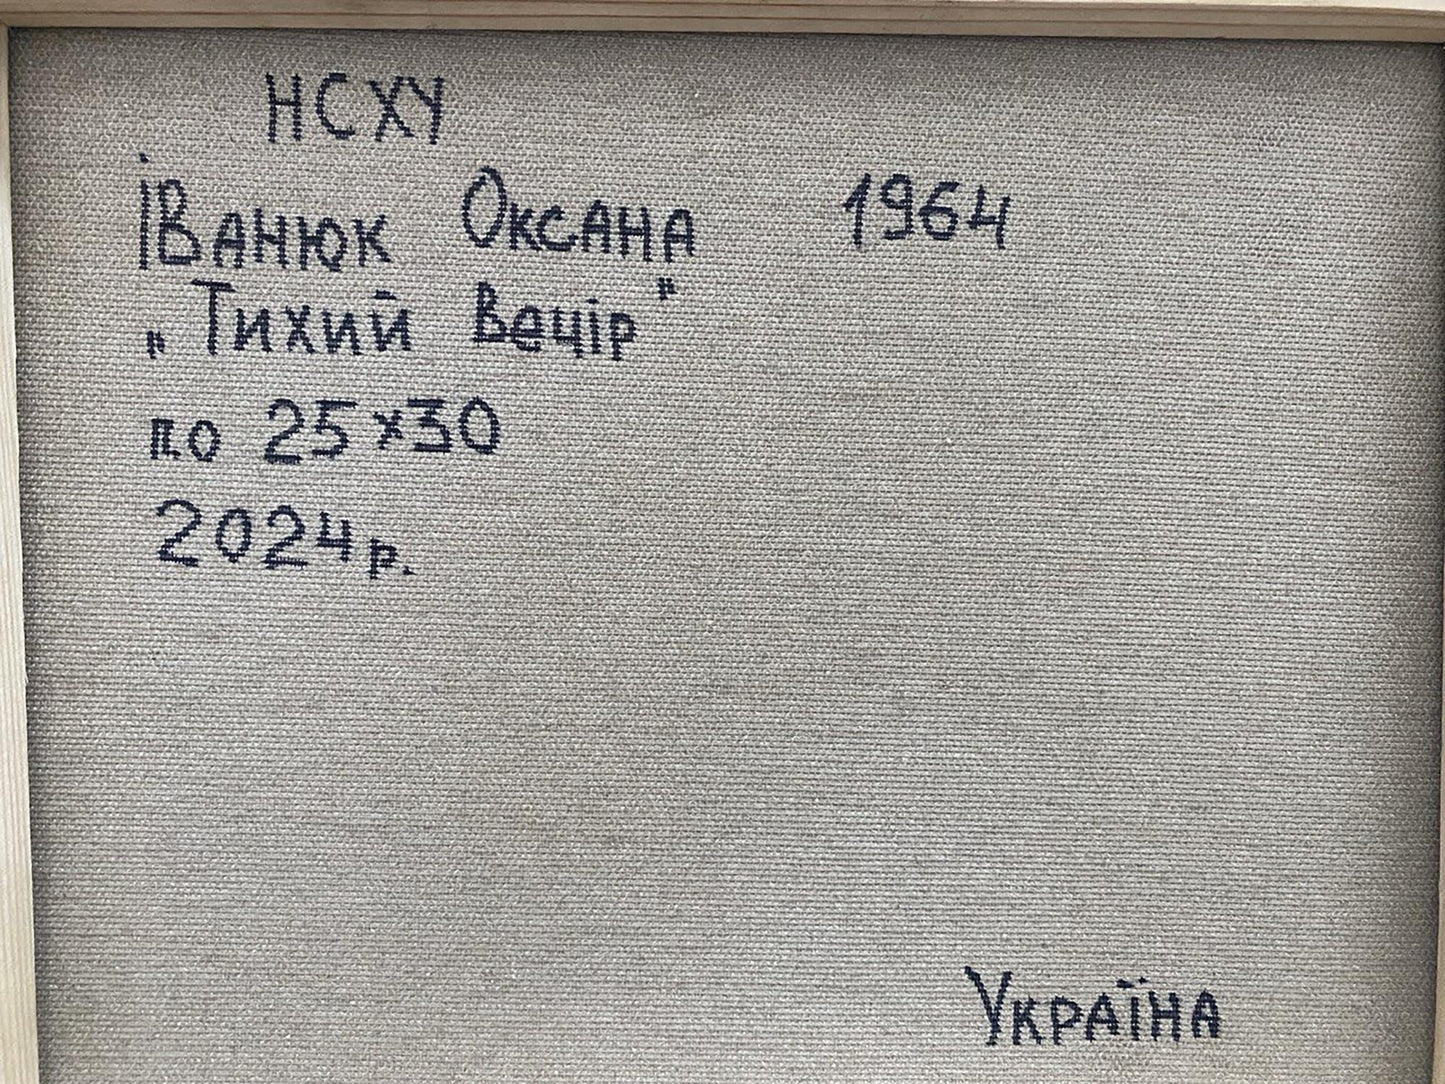 НСХУ
Іванюк Оксана 1964
„Тихий вечір"
по 25×30
2024 р.
Україна